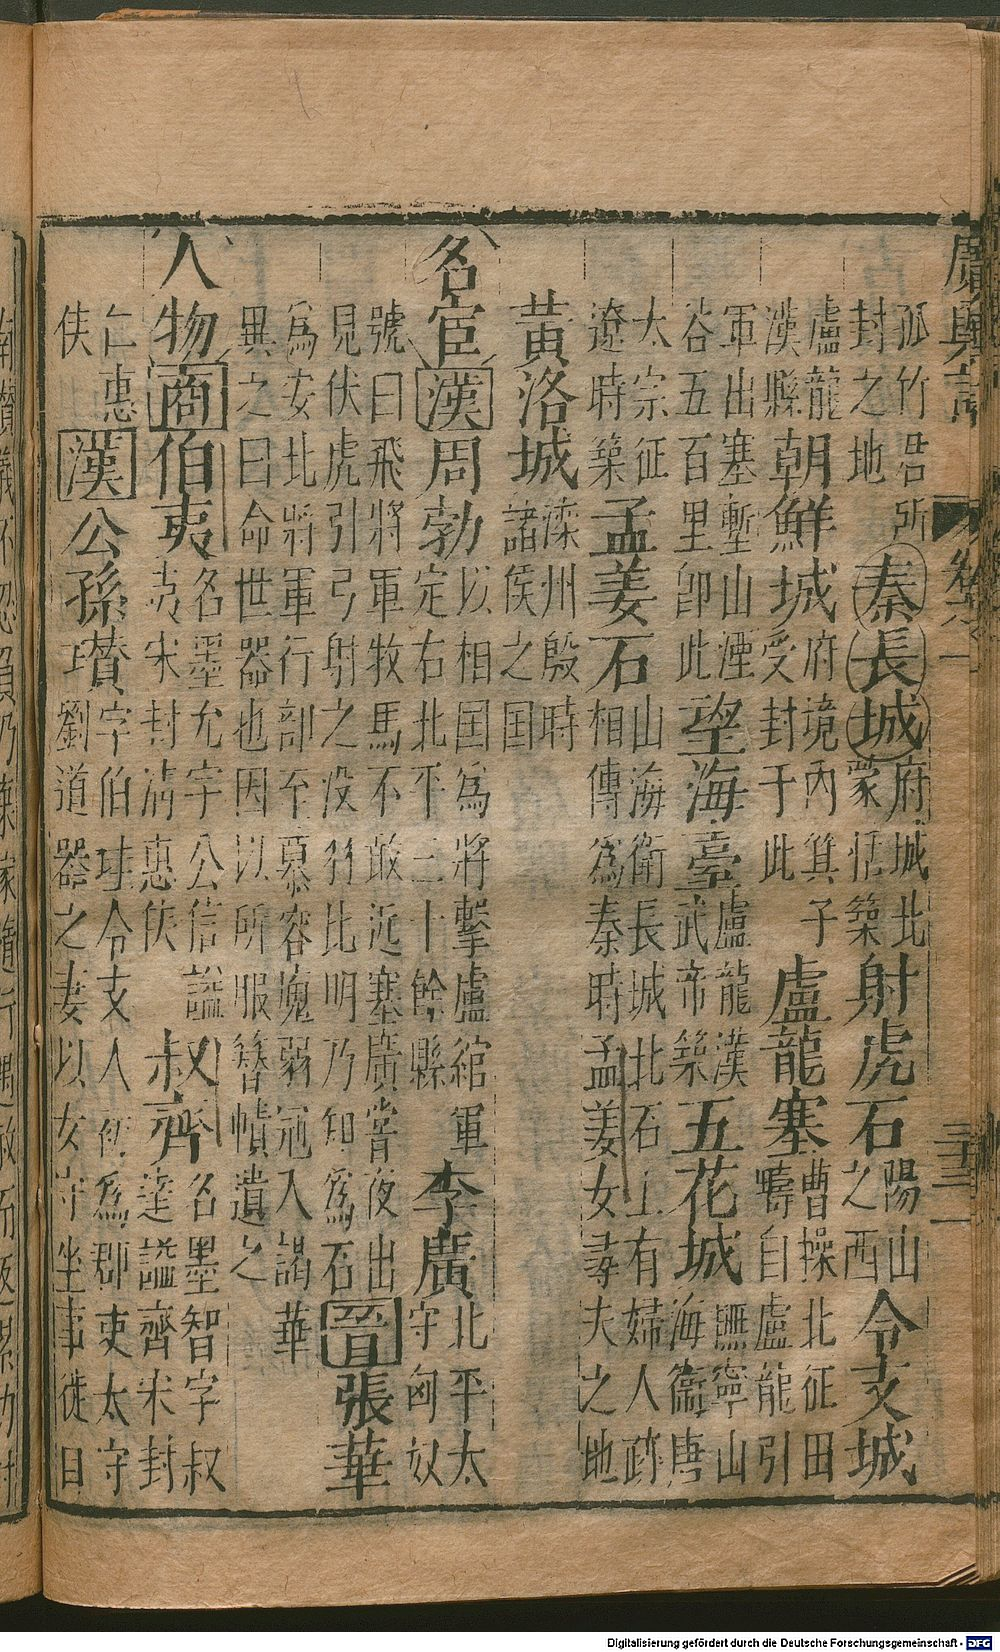 廣輿記
三十三
孤竹君所封之地秦長城府城北蒙恬築射虎石陽山之西令支城
盧龍漢縣朝鮮城府境內箕子受封于此盧龍塞曹操北征田疇自盧龍引
軍出塞塹山湮谷五百里卽此望海臺盧龍漢武帝築五花城撫寧山海衞唐
太宗征遼時築孟姜石山海衛長城北石上有婦人跡相傳為秦時孟姜女尋夫之地
黃洛城滦州殷時諸侯之国
名宦漢周勃以相国為將擊盧綰軍定右北平二十餘縣李廣北平太守匈奴
號曰飛將軍牧馬不敢近塞廣嘗夜出見伏虎引弓射之没羽比明乃知為石晉張華
為安北將軍行部至慕容廆弱冠入謁華異之曰命世器也因以所服簪幘遺之
人物商伯夷名墨允字公信謚夷宋封清惠侯叔齊名墨智字叔達謚齊宋封
仁惠侯漢公孫瓚字伯珪令支人初為郡吏太守劉道器之妻以女守坐事徙日
Digitalisierung gefördert durch die Deutsche Forschungsgemeinschaft - DFG